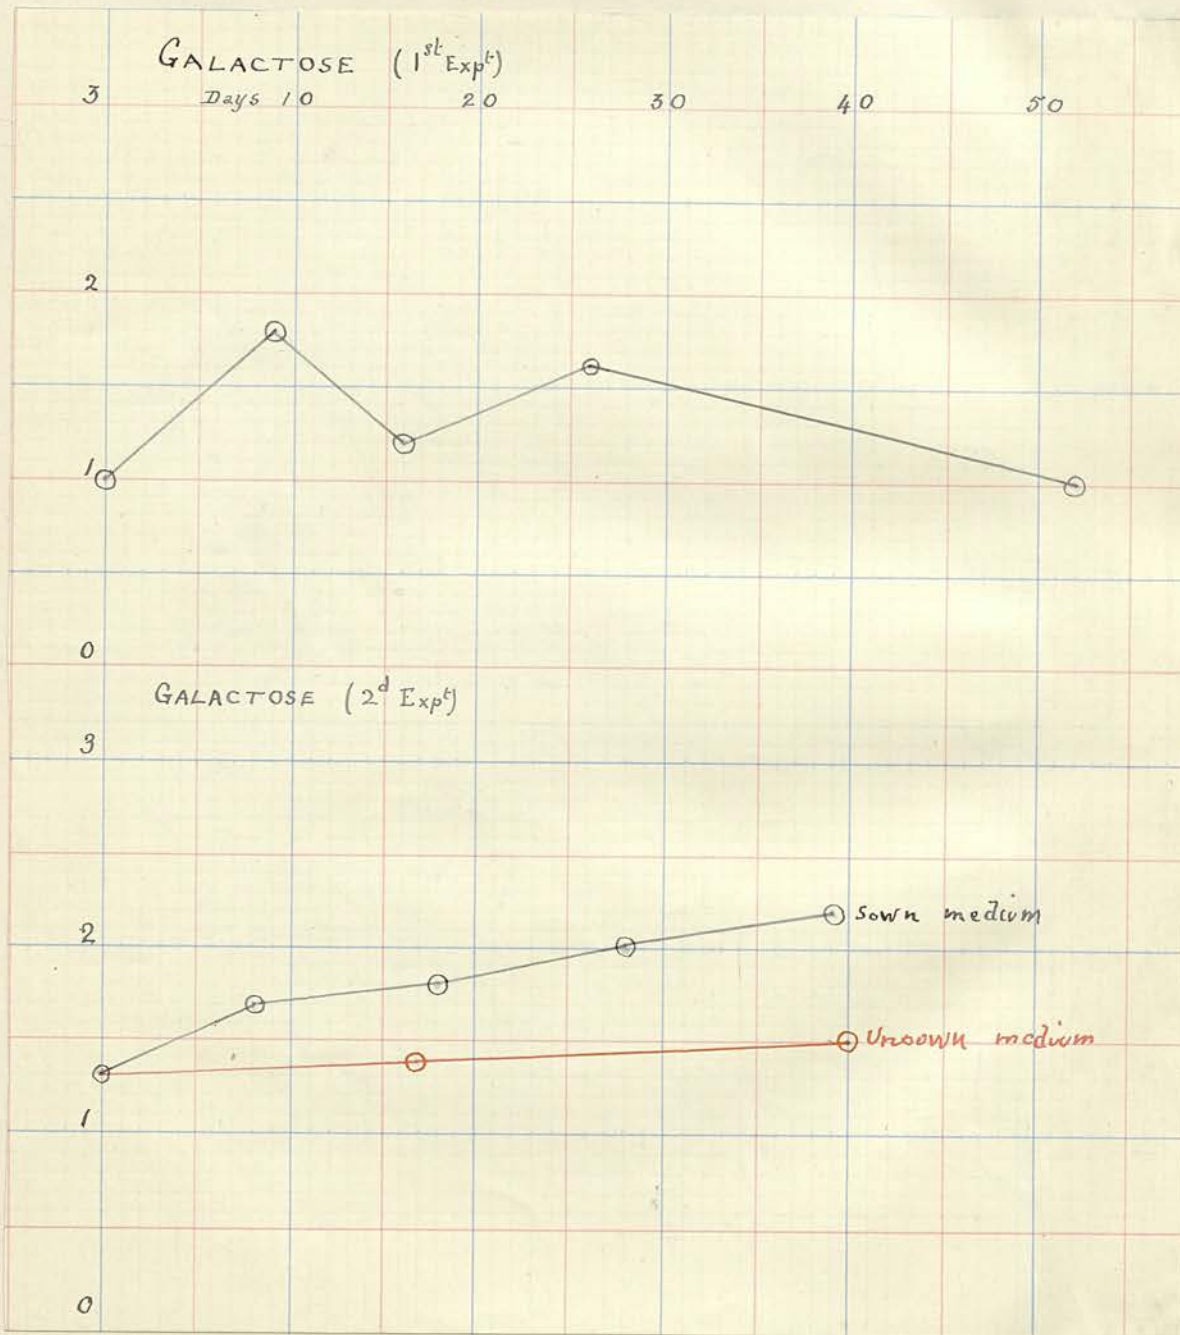 GALACTOSE (1st Expt)
3 Days 10 20 30 40 50
2
1
0
GALACTOSE (2d Expt)
3
2
Sown medium
Unsown medium
1
0